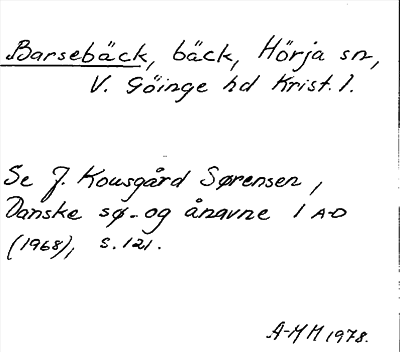 Barsebäck, bäck, Hörja sn,
V. Göinge hd Krist. l.
Se J. Kousgård Sørensen,
Danske sø- og ånavne 1 A-D
(1968), s. 121.
A-MH 1978.